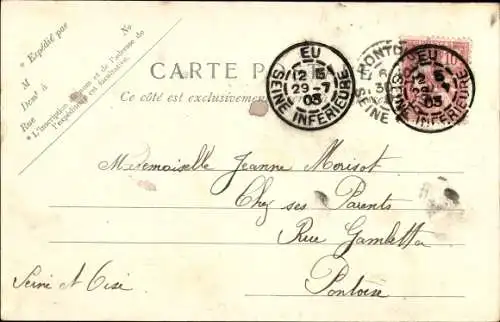 * Expédié par
M
Dem.t à
Rue
No
* L'inscription du nom et de l'adresse de
l'expéditeur est facultative.
CARTE PO
Ce côté est exclusivement
EU
12 5
29 -7
03
SEINE INFERIEURE
EU
12 5
29 -7
03
SEINE INFERIEURE
PONTO
6
30
SEINE
10
Mademoiselle Jeanne Morisot
Chez ses Parents
Rue Gambetta
Pontoise
Seine et Oise